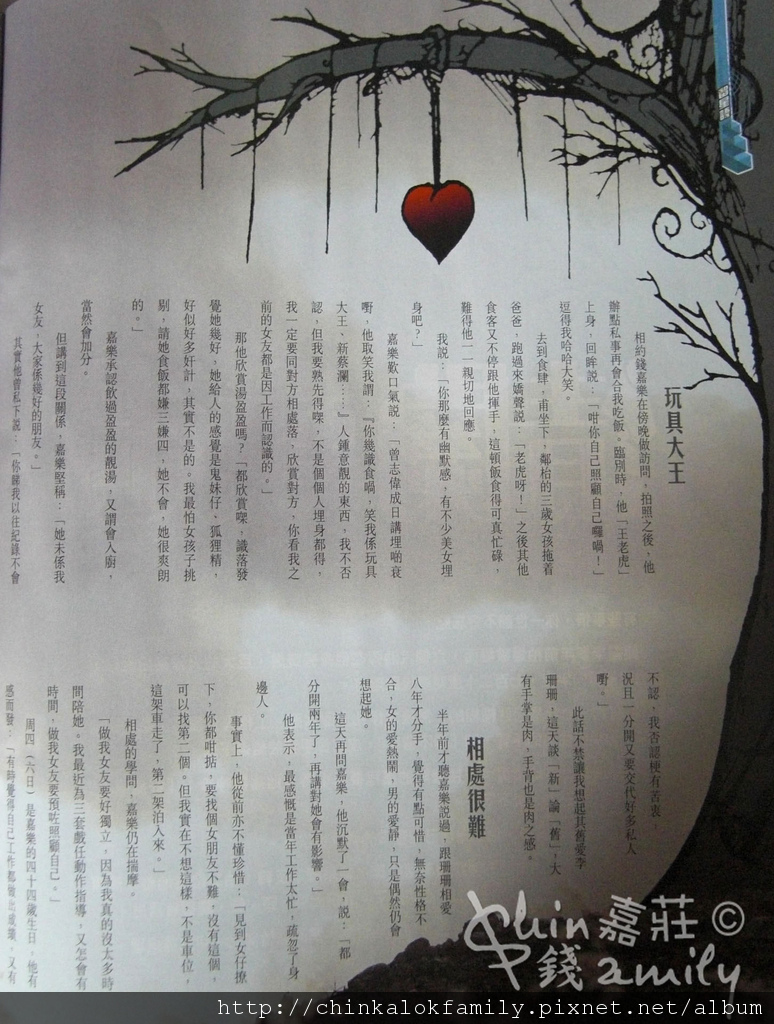 玩具大王
相約錢嘉樂在傍晚做訪問，拍照之後，他
辦點私事再會合我吃飯。臨別時，他「王老虎」
上身，回眸說：「咁你自己照顧自己囉喎！」
逗得我哈哈大笑。
去到食肆，甫坐下，鄰枱的三歲女孩拖着
爸爸，跑過來嬌聲說：「老虎呀！」之後其他
食客又不停跟他揮手，這頓飯食得可真忙碌，
難得他一一親切地回應。
我說：「你那麼有幽默感，有不少美女埋
身吧？」
嘉樂歎口氣說：「曾志偉成日講埋啲衰
嘢，他取笑我謂：『你幾識食喎，笑我係玩具
大王、新蔡瀾……』人鍾意靚的東西，我不否
認，但我要熟先得㗎，不是個個人埋身都得，
我一定要同對方相處落，欣賞對方，你看我之
前的女友都是因工作而認識的。」
那他欣賞湯盈盈嗎？「都欣賞㗎，識落發
覺她幾好，她給人的感覺是鬼妹仔、狐狸精，
好似好多奸計，其實不是的。我最怕女孩子挑
剔，請她食飯都嫌三嫌四，她不會，她很爽朗
的。」
嘉樂承認飲過盈盈的靚湯，又謂會入廚，
當然會加分。
但講到這段關係，嘉樂堅稱：「她未係我
女友，大家係幾好的朋友。」
其實他曾私下說：「你睇我以往紀錄不會
不認，我否認梗有苦衷，
況且一分開又要交代好多私人
嘢。」
此話不禁讓我想起其舊愛李
珊珊，這天談「新」論「舊」，大
有手掌是肉，手背也是肉之感。
相處很難
半年前才聽嘉樂說過，跟珊珊相愛
八年才分手，覺得有點可惜，無奈性格不
合，女的愛熱鬧，男的愛靜，只是偶然仍會
想起她。
這天再問嘉樂，他沉默了一會，說：「都
分開兩年了，再講對她會有影響。」
他表示，最感慨是當年工作太忙，疏忽了身
邊人。
事實上，他從前亦不懂珍惜：「見到女仔撩
下，你都咁掂，要找個女朋友不難，沒有這個，
可以找第二個。但我實在不想這樣，不是車位，
這架車走了，第二架泊入來。」
相處的學問，嘉樂仍在揣摩。
「做我女友要好獨立，因為我真的沒太多時
間陪她。我最近為三套戲任動作指導，又怎會有
時間，做我女友要預咗照顧自己。」
周四（六日）是嘉樂的四十四歲生日，他有
感而發：「有時覺得自己工作都做出成績，又有
Chin嘉莊©
錢Family
http://chinkalokfamily.pixnet.net/album